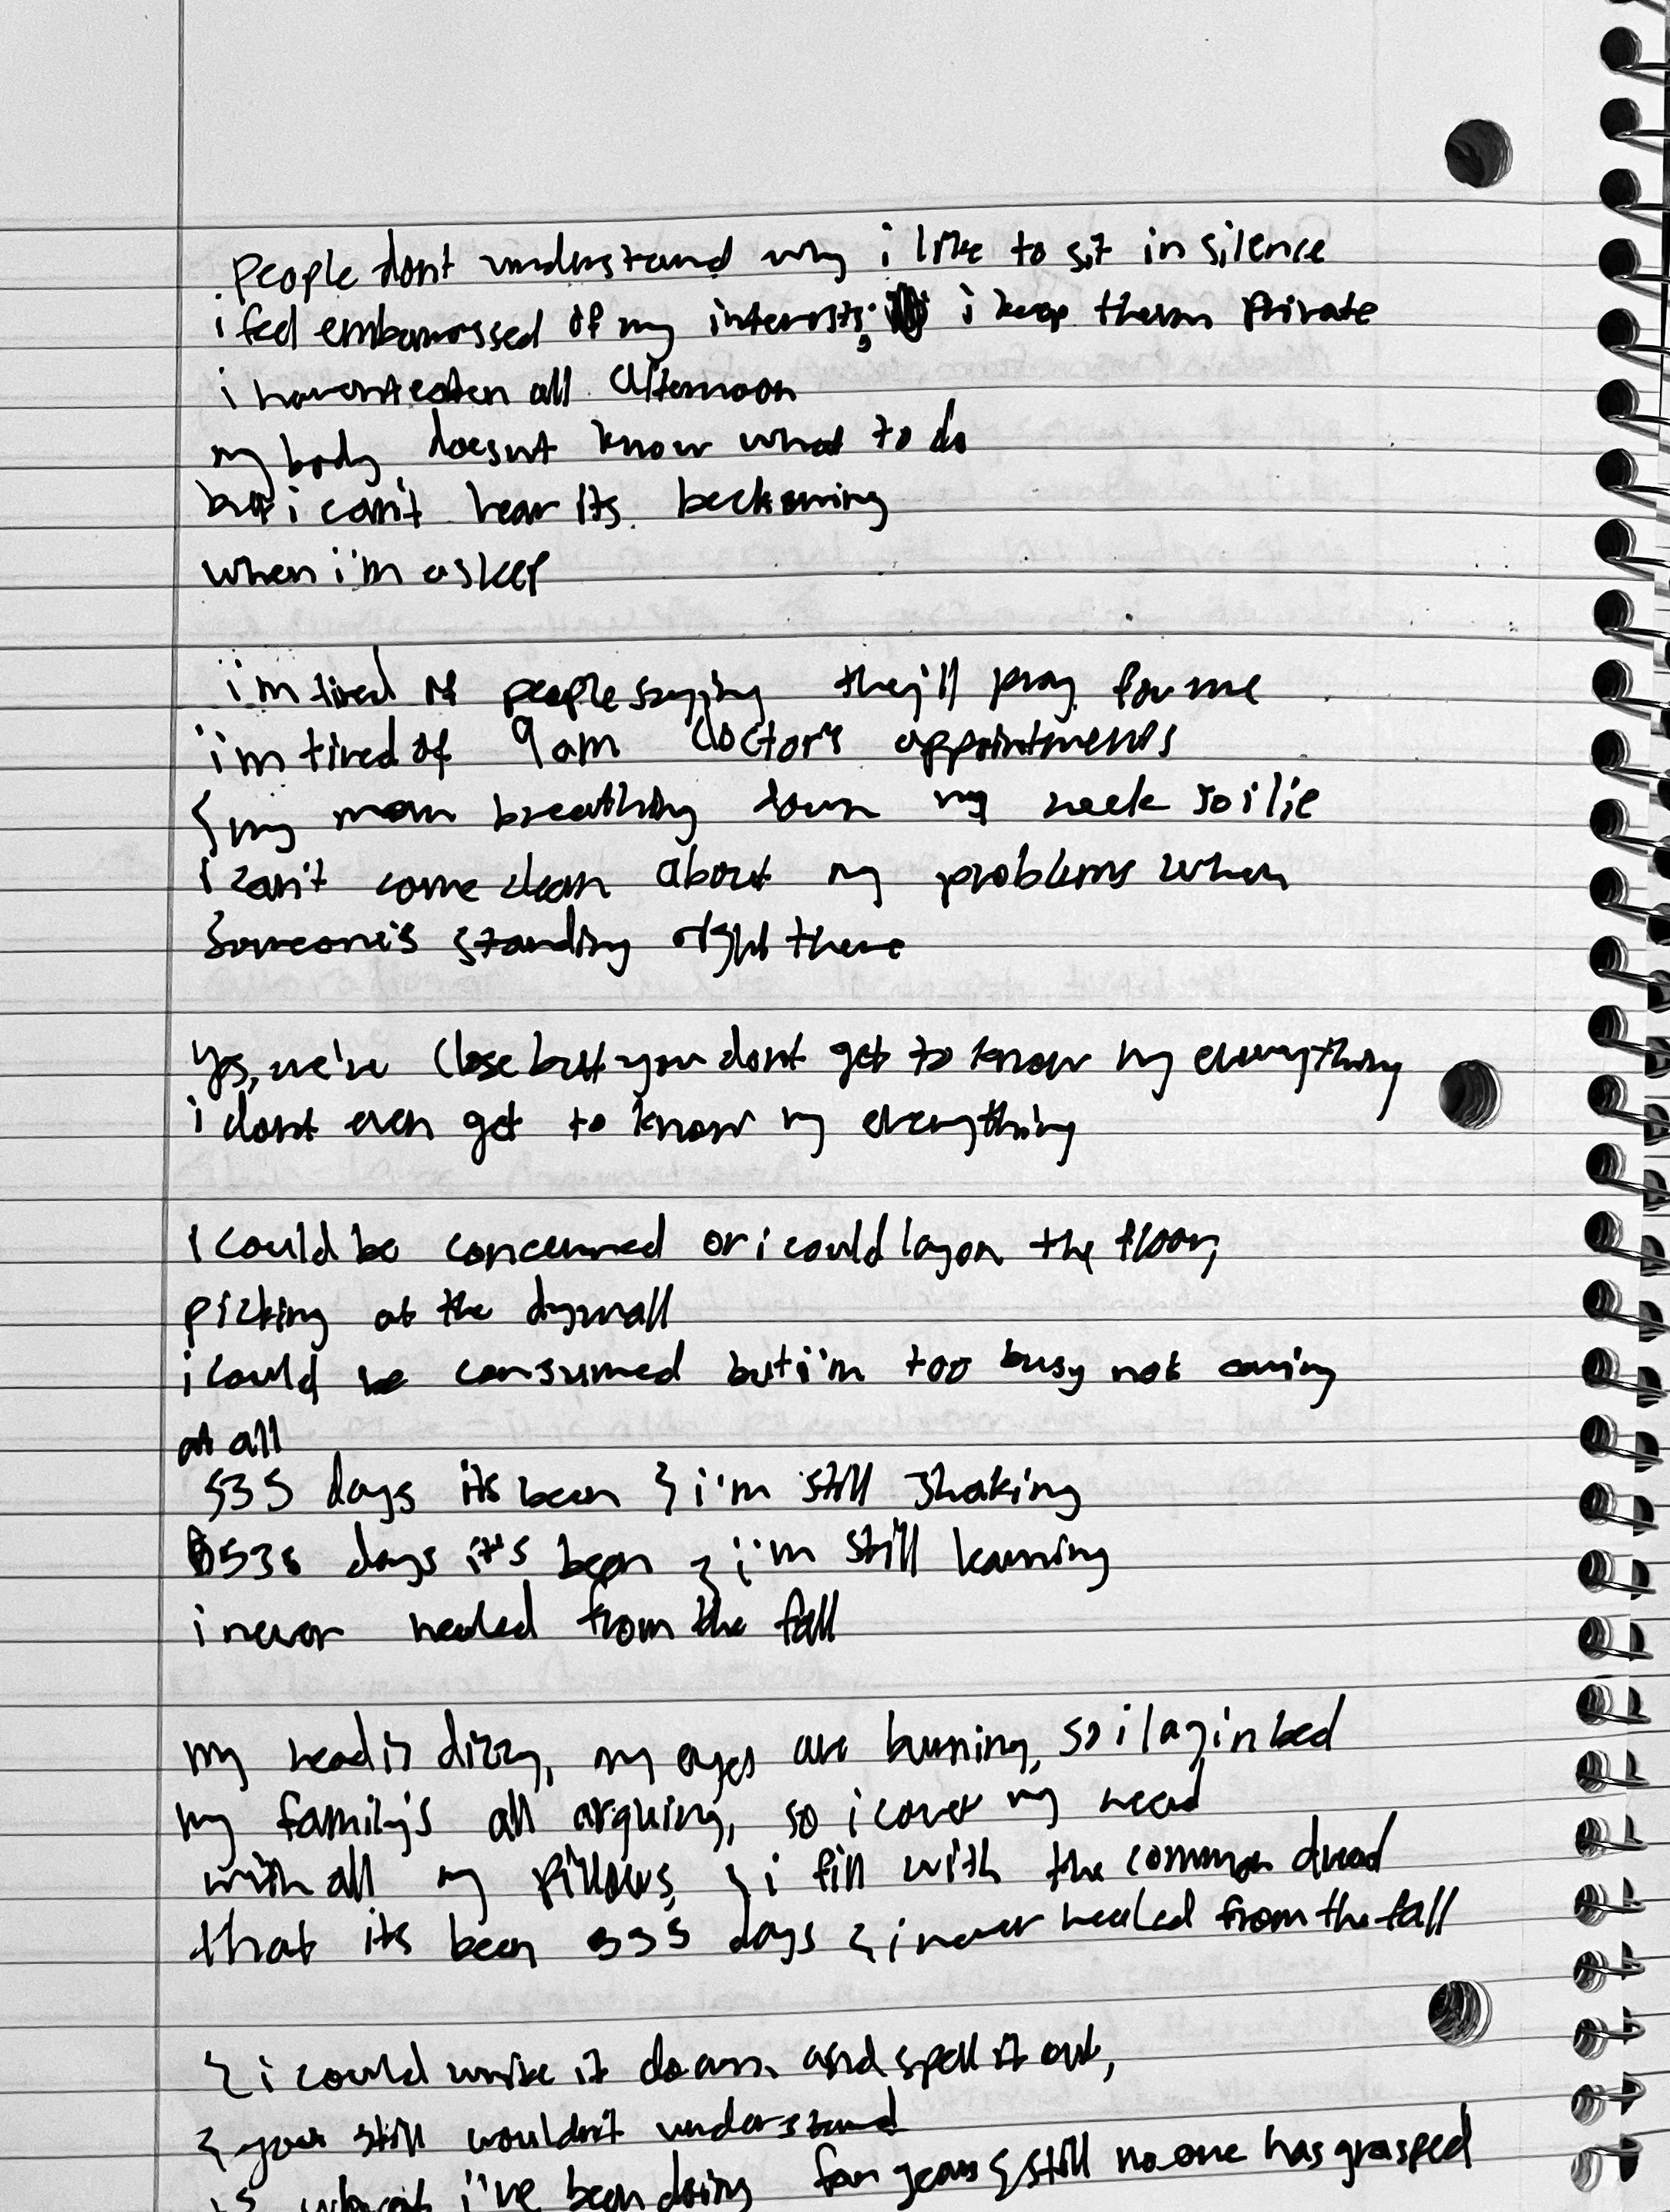 people dont understand why i like to sit in silence
i feel embarrassed of my interests; i keep them private
i havent eaten all afternoon
my body doesnt know what to do
but i can't hear its beckoning
when i'm asleep
i'm tired of people saying they'll pray for me
i'm tired of 9am doctor's appointments
& my mom breathing down my neck so i lie
i can't come clean about my problems when
someone's standing right there
yes, we're close but you dont get to know my everything
i dont even get to know my everything
i could be concerned or i could lay on the floor,
picking at the drywall
i could be consumed but i'm too busy not caring
at all
535 days its been & i'm still shaking
535 days it's been & i'm still learning
i never healed from the fall
my head is dizzy, my eyes are burning, so i lay in bed
my family's all arguing, so i cover my head
with all my pillows, & i fill with the common dread
that its been 535 days & i never healed from the fall
& i could write it down and spell it out,
& you still wouldn't understand
is what i've been doing for years & still no one has grasped